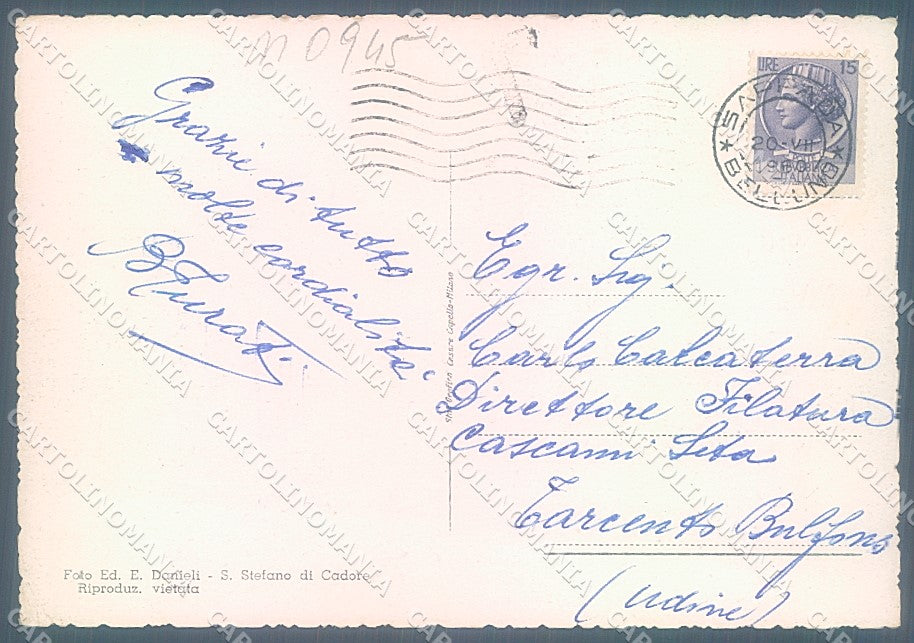 0945
Grazie di tutto
molte cordialità
LIRE 15
SAPPADA
BELLUNO
20-VII
ITALIANA
Egr. Sig.
Carlo Calcaterra
Direttore Filatura
Cascami Seta
Tarcento Bulfons
(Udine)
Vera Fotografia Cesare Capello-Milano
Foto Ed. E. Danieli - S. Stefano di Cadore
Riproduz. vietata
CARTOLINOMANIA